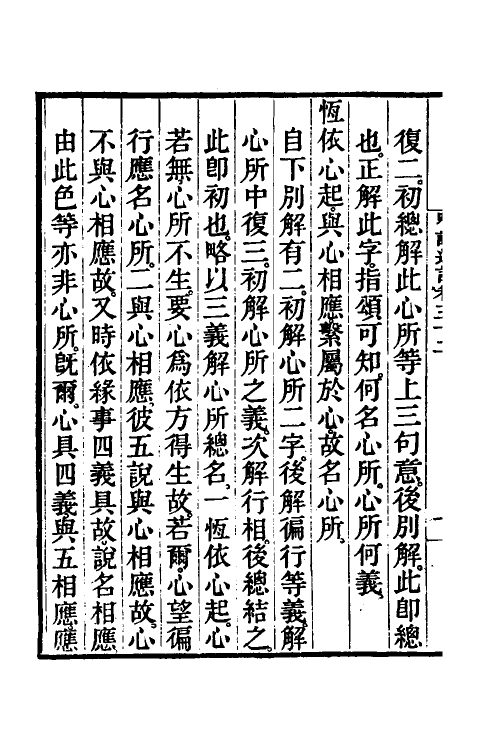 復二。初總解此心所等上三句意。後別解。此卽總
也。正解此字。指頌可知。何名心所。心所何義。
恆依心起。與心相應。繫屬於心。故名心所。
自下別解有二。初解心所二字。後解徧行等義。解
心所中復三。初解心所之義。次解行相。後總結之。
此卽初也。略以三義解心所總名。一恆依心起。心
若無。心所不生。要心爲依方得生故。若爾。心望徧
行應名心所。二與心相應。彼五說與心相應故。心
不與心相應故。又時依緣事四義具故。說名相應。
由此色等亦非心所。旣爾。心具四義。與五相應。應